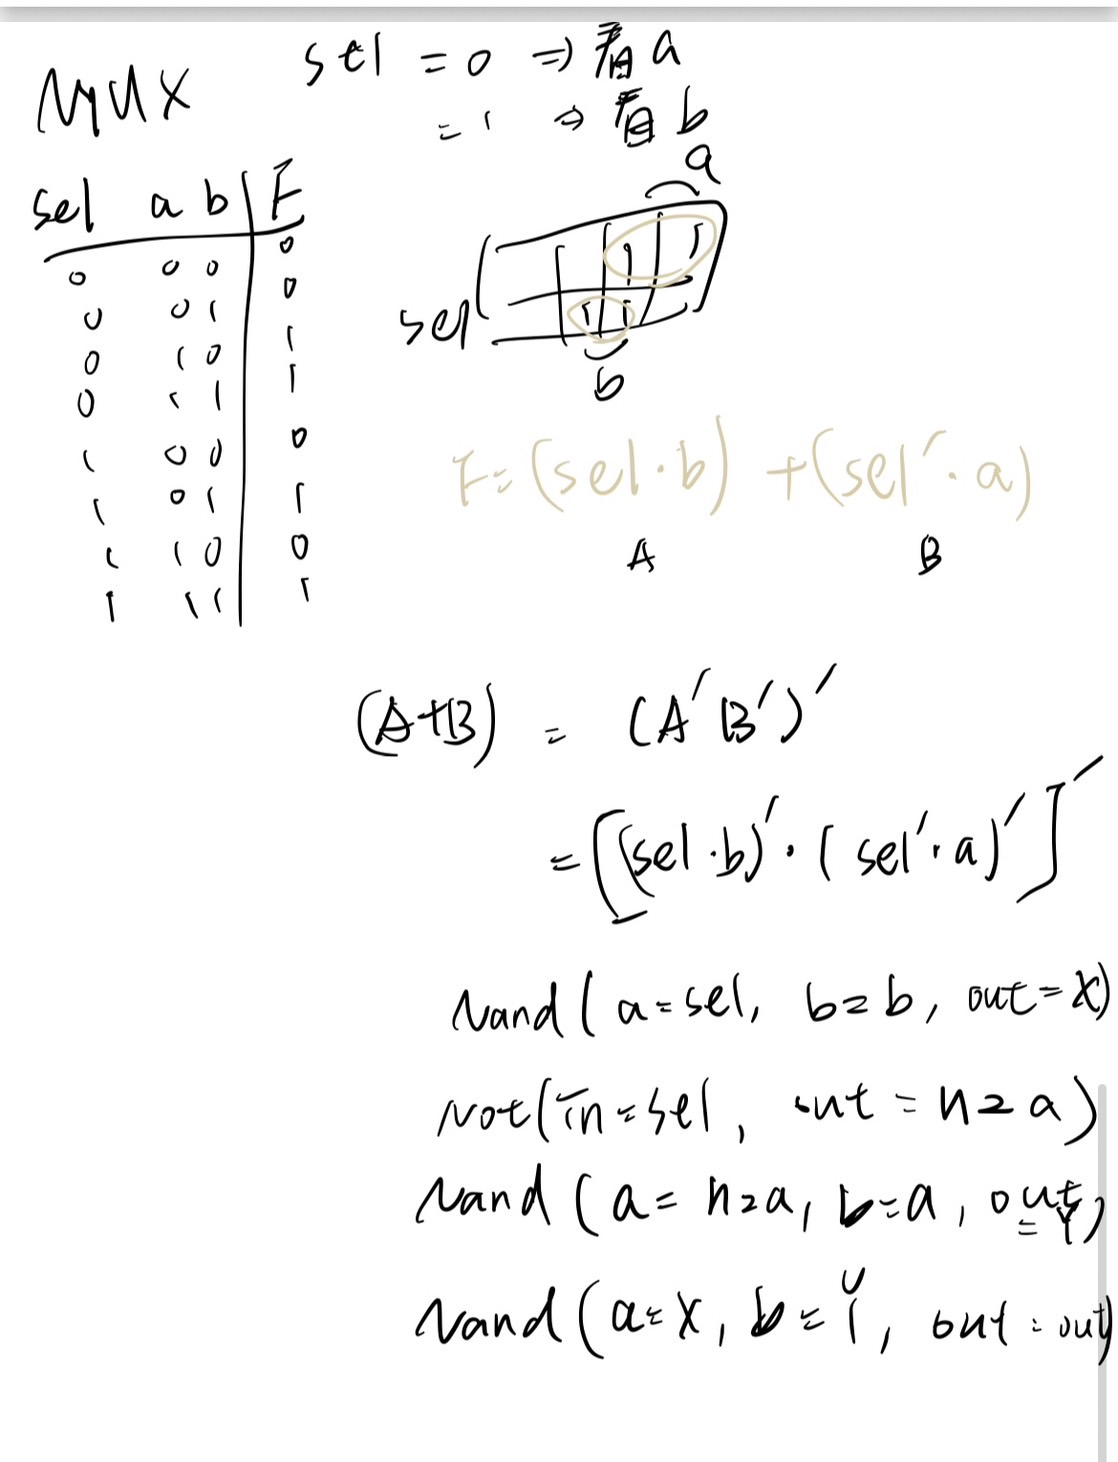 MUX
sel = 0 ⇒ 看a
= 1 ⇒ 看b
sel a b F
0 0 0 0
0 0 1 0
0 1 0 1
0 1 1 1
1 0 0 0
1 0 1 1
1 1 0 0
1 1 1 1
a
1 1
sel
1 1
b
F = (sel·b) + (sel'·a)
A B
(A+B) = (A'B')'
= [(sel·b)'·(sel'·a)']'
Nand(a=sel, b=b, out=X)
Not(in=sel, out=nza)
Nand(a=nza, b=a, out=Y)
Nand(a=X, b=Y, out=out)